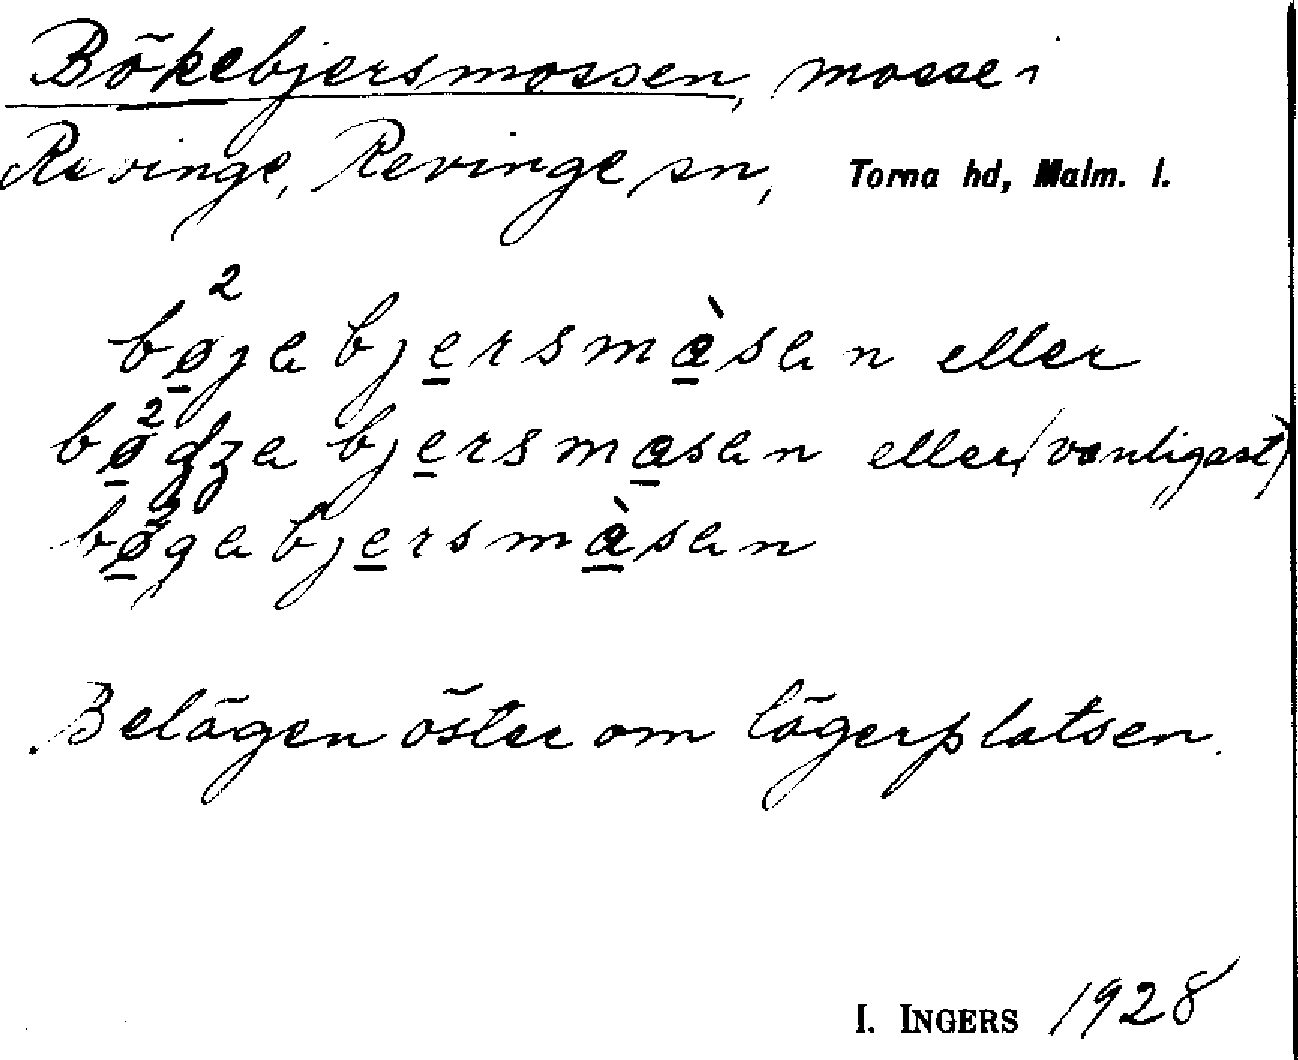 Bökebjersmossen, mosse i
Revinge, Revinge sn, Torna hd, Malm. l.
bø²ja bjersmàsan eller
bø²dʒa bjersmasan eller (vanligast)
bø²ga bjersmàsan
Belägen öster om lägerplatsen.
I. INGERS 1928